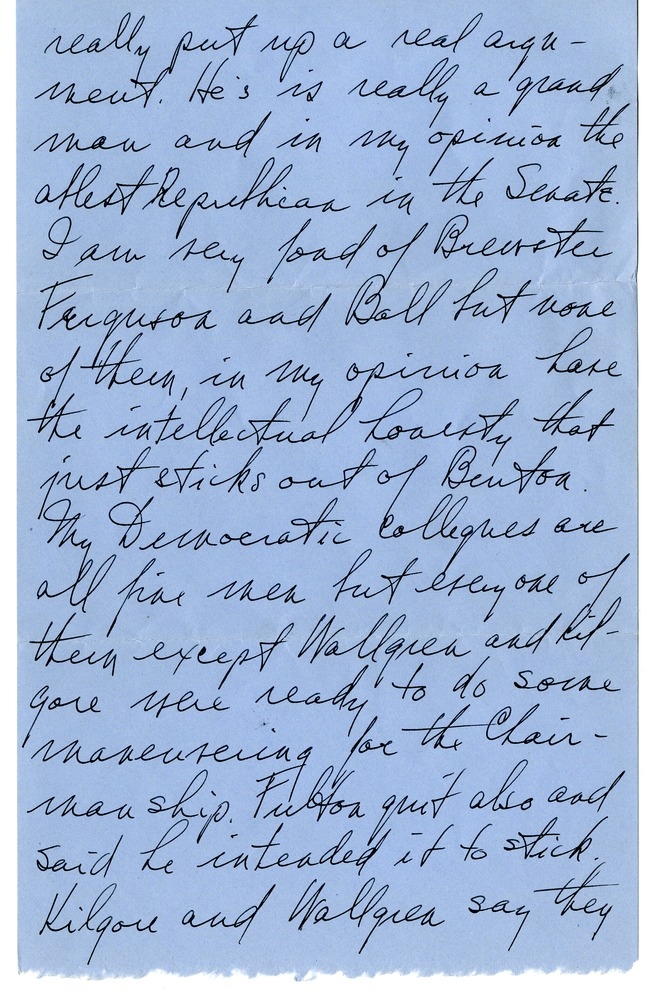 really put up a real argu-
ment. He's is really a grand
man and in my opinion the
ablest Republican in the Senate.
I am very fond of Brewster
Ferguson and Ball but none
of them, in my opinion have
the intellectual honesty that
just sticks out of Benton.
My Democratic collegues are
all fine men but everyone of
them except Wallgren and Kil-
gore were ready to do some
maneuvering for the Chair-
manship. Fulton quit also and
said he intended it to stick.
Kilgore and Wallgren say they